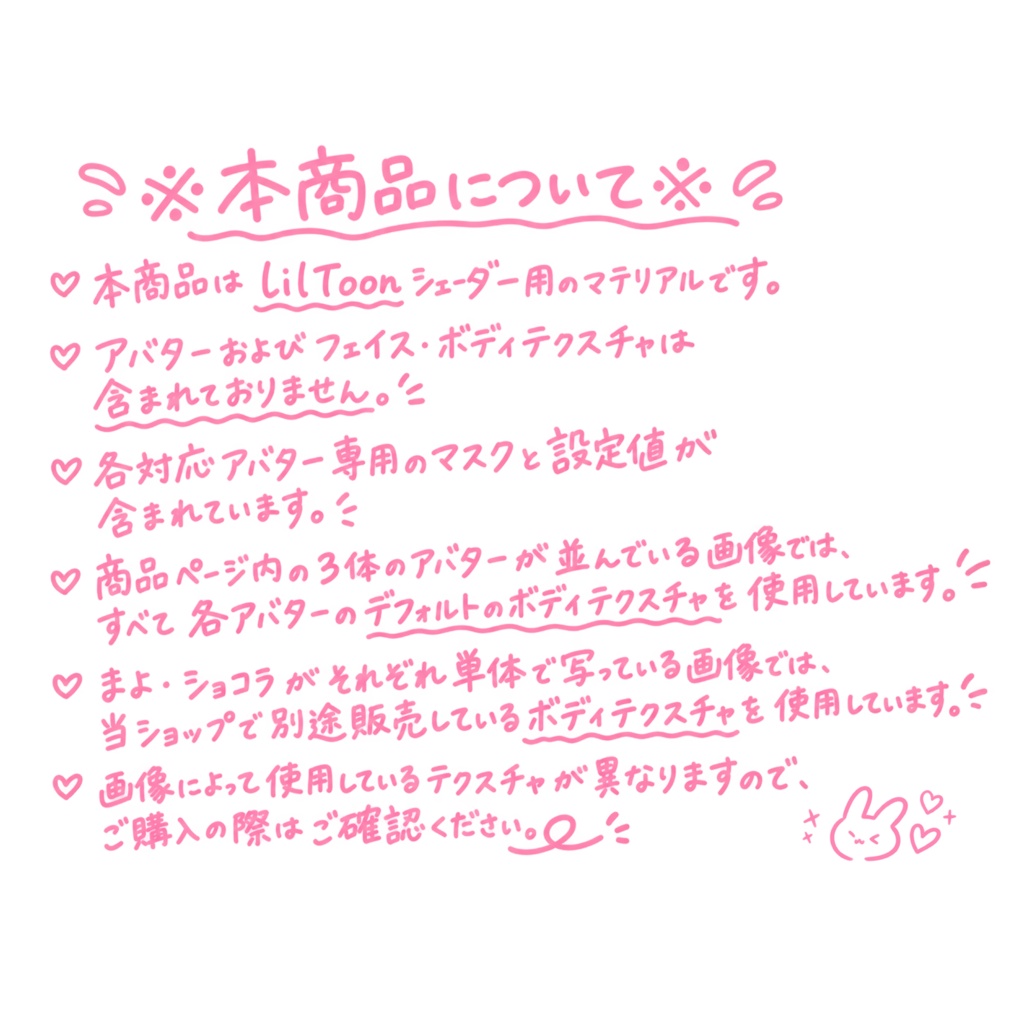 ※本商品について※
♡ 本商品は LilToon シェーダー用のマテリアルです。
♡ アバターおよびフェイス・ボディテクスチャは
含まれておりません。
♡ 各対応アバター専用のマスクと設定値が
含まれています。
♡ 商品ページ内の3体のアバターが並んでいる画像では、
すべて各アバターのデフォルトのボディテクスチャを使用しています。
♡ まよ・ショコラがそれぞれ単体で写っている画像では、
当ショップで別途販売しているボディテクスチャを使用しています。
♡ 画像によって使用しているテクスチャが異なりますので、
ご購入の際はご確認ください。